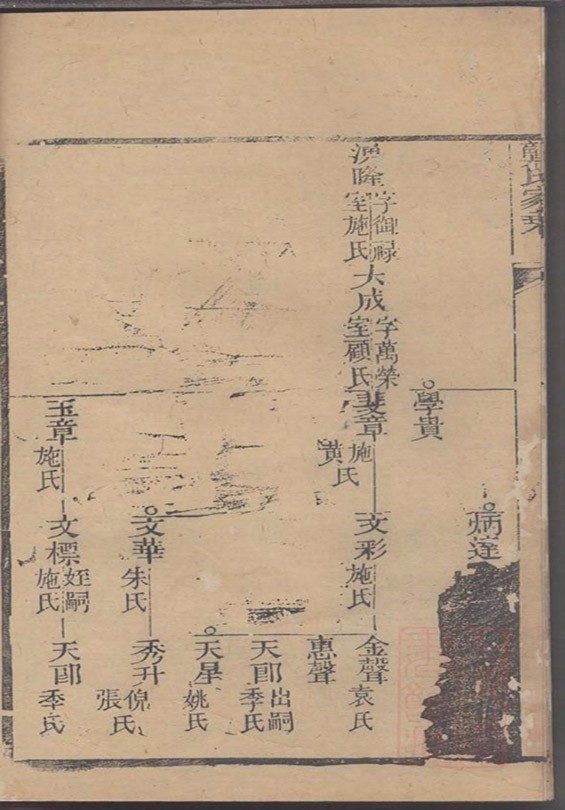 龔氏家乘
炳逵
學貴
漁隆 字御祿 室施氏
大成 字萬榮 室顧氏
斐章 施氏 黄氏
文彩 施氏
金聲 袁氏
惠聲
天郎 出嗣 季氏
天星 姚氏
文華 朱氏
秀升 倪氏 張氏
玉章 施氏
文標 姪嗣 施氏
天郎 季氏